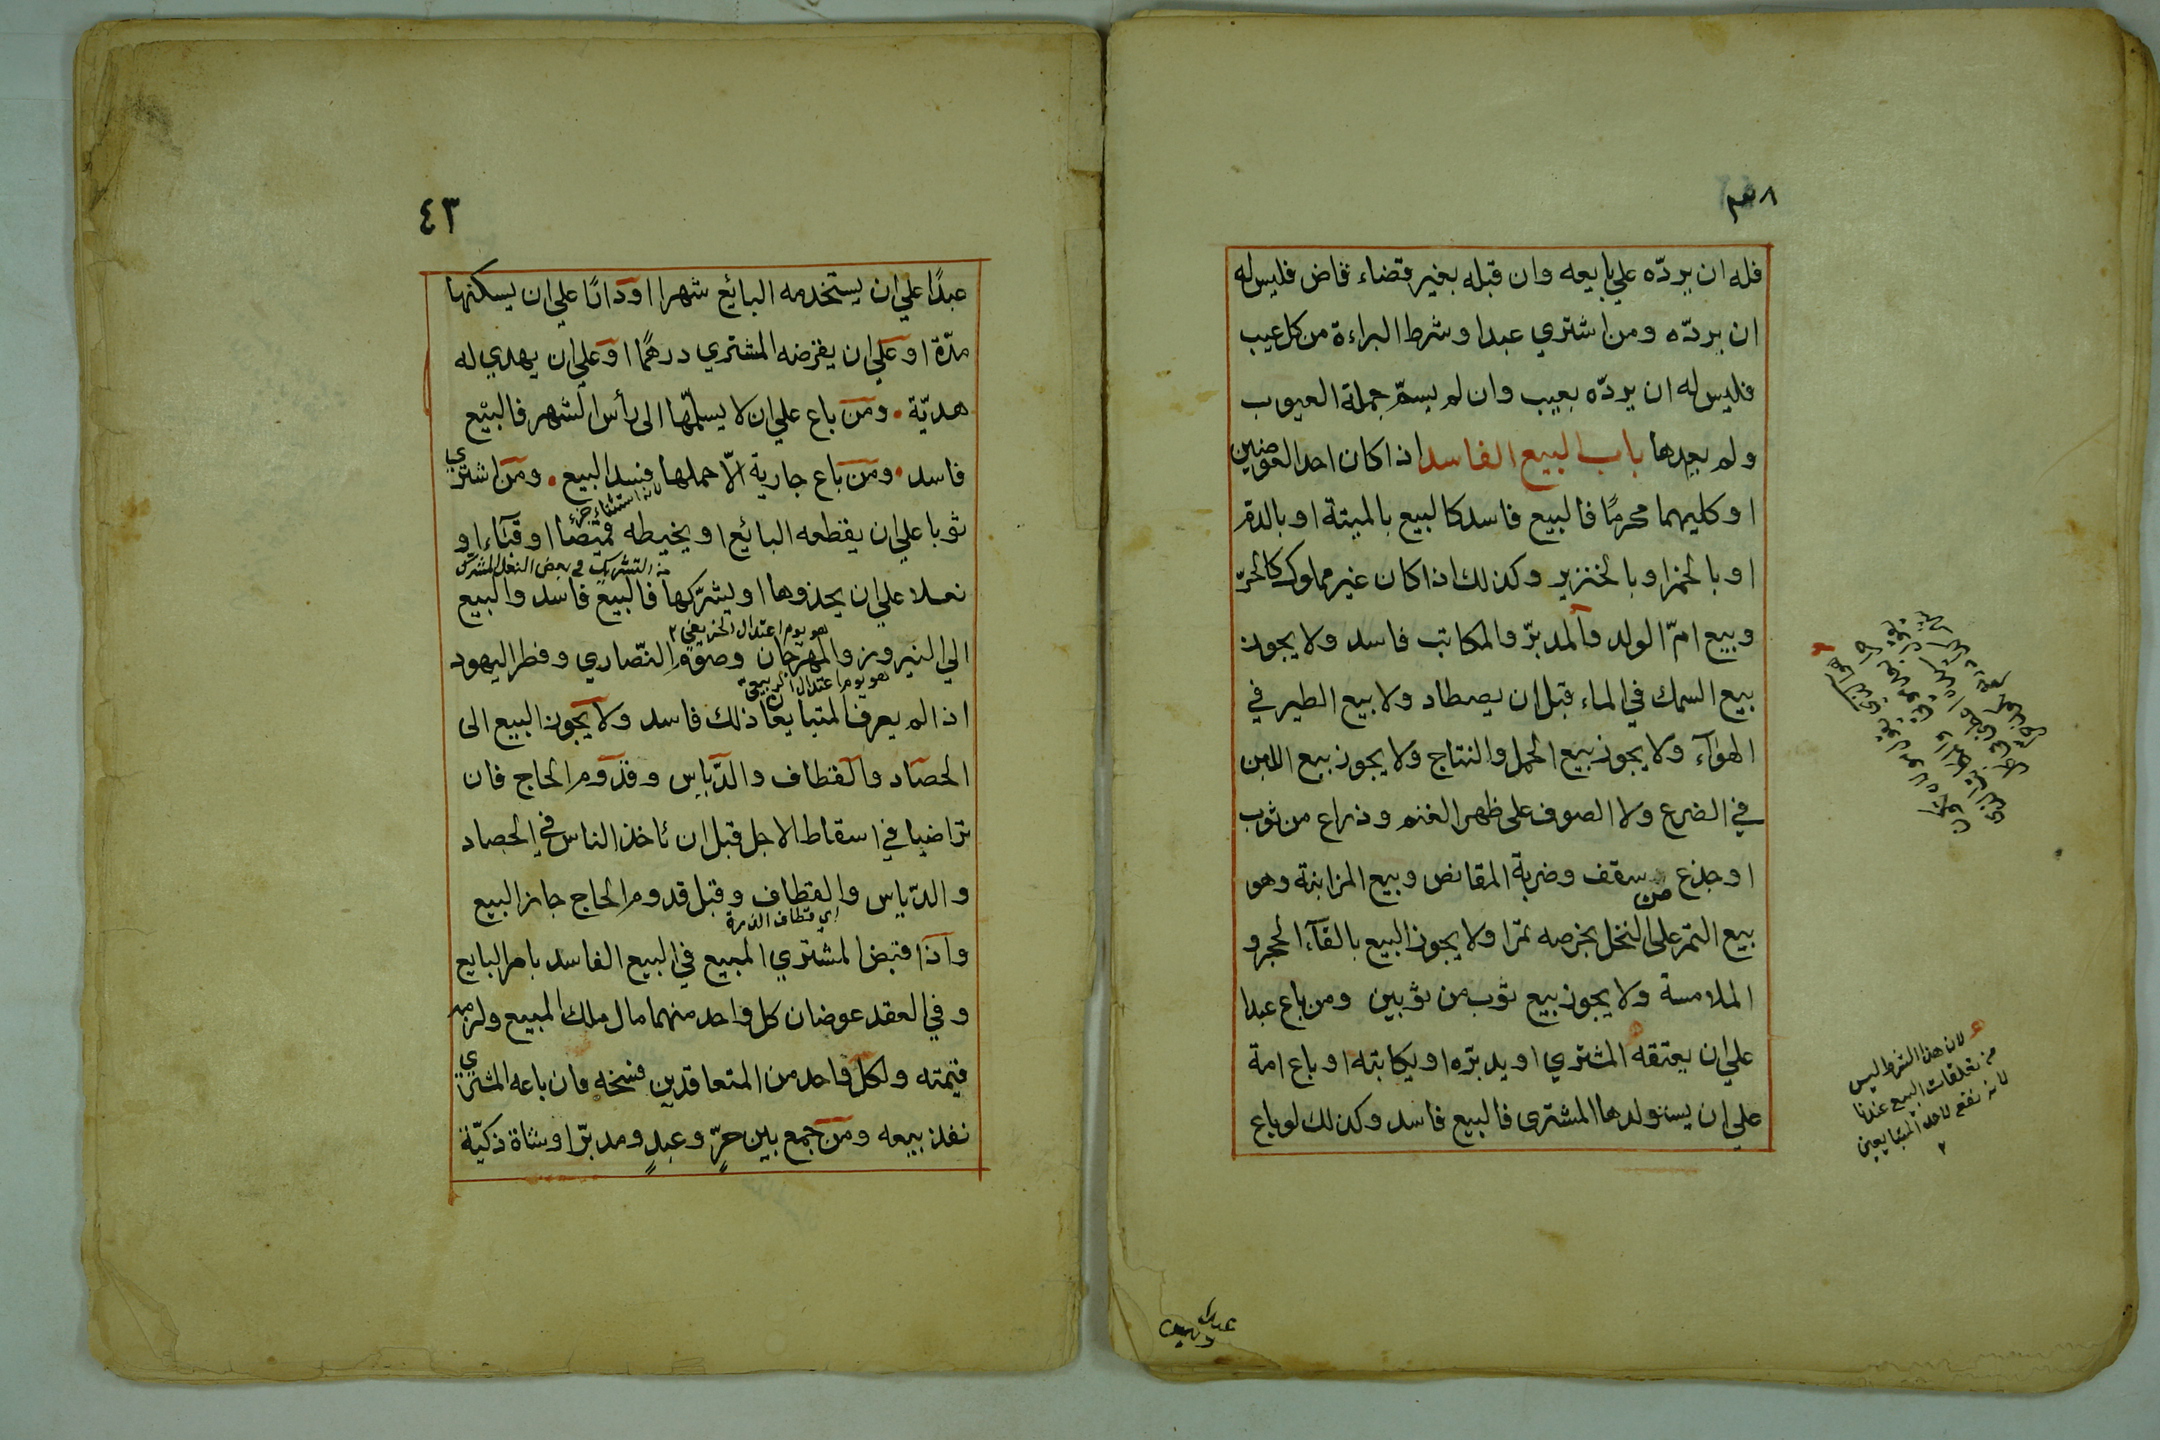 فله ان يردّه علي بايعه وان قبله بغير قضاء قاض فليس له
ان يردّه ومن اشتري عبدا وشرط البراءة من كل عيب
فليس له ان يردّه بعيب وان لم يسمّ جملة العيوب
ولم يعدها باب البيع الفاسد اذا كان احد العوضين
او كليهما محرمًا فالبيع فاسد كالبيع بالميتة او بالدم
او بالخمر او بالخنزير وكذلك اذا كان غير مملوك كالحرّ
وبيع امّ الولد والمدبّر والمكاتب فاسد ولا يجوز
بيع السمك في الماء قبل ان يصطاد ولا بيع الطير في
الهوآء ولا يجوز بيع الحمل والنتاج ولا يجوز بيع اللبن
في الضرع ولا الصوف على ظهر الغنم وذراع من ثوب
او جذع من سقف وضربة القانص وبيع المزابنة وهو
بيع التمر على النخل بخرصه تمرا ولا يجوز البيع بالقآء الحجر و
الملامسة ولا يجوز بيع ثوب من ثوبين ومن باع عبدا
علي ان يعتقه المشتري او يدبّره او يكاتبه او باع امة
علي ان يستولدها المشترى فالبيع فاسد وكذلك لو باع
لان هذا الشرط ليس
من تعلقات البيع عندنا
لانه نفع لاحد المتبايعين
٤٣
عبدًا علي ان يستخدمه البائع شهرا او دارًا علي ان يسكنها
مدّة او علي ان يقرضه المشتري درهمًا او علي ان يهدي له
هديّة ومن باع علي ان لا يسلّمها الى رأس الشهر فالبيع
فاسد ومن باع جارية الّا حملها فسد البيع ومن اشتري
لانه استثناء جزء
ثوبا علي ان يقطعه البائع او يخيطه قميصًا او قبآء او
نعلا علي ان يحذوها او يشرّكها فالبيع فاسد والبيع
هو يوم اعتدال الخريفي
الي النيروز والمهرجان وصوم النّصاري وفطر اليهود
هو يوم اعتدال الربيعي
اذا لم يعرف المتبايعان ذلك فاسد ولا يجوز البيع الى
الحصاد والقطاف والدّياس وقدوم الحاج فان
تراضيا في اسقاط الاجل قبل ان ياخذ الناس في الحصاد
والدّياس والقطاف وقبل قدوم الحاج جاز البيع
واذا قبض المشتري المبيع في البيع الفاسد بامر البايع
وفي العقد عوضان كل واحد منهما مال ملك المبيع ولزمه
قيمته ولكل واحد من المتعاقدين فسخه فان باعه المشتري
نفذ بيعه ومن جمع بين حرّ وعبدٍ ومدبّر او شاة ذكيّة